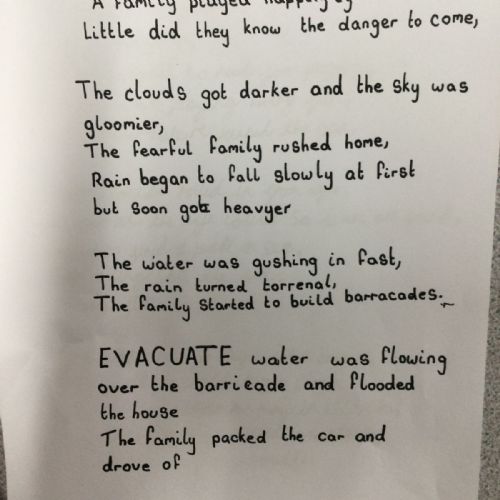 A family played happily
Little did they know the danger to come,
The clouds got darker and the sky was
gloomier,
The fearful family rushed home,
Rain began to fall slowly at first
but soon got heavyer
The water was gushing in fast,
The rain turned torrenal,
The family started to build barracades.
EVACUATE water was flowing
over the barrieade and flooded
the house
The family packed the car and
drove of